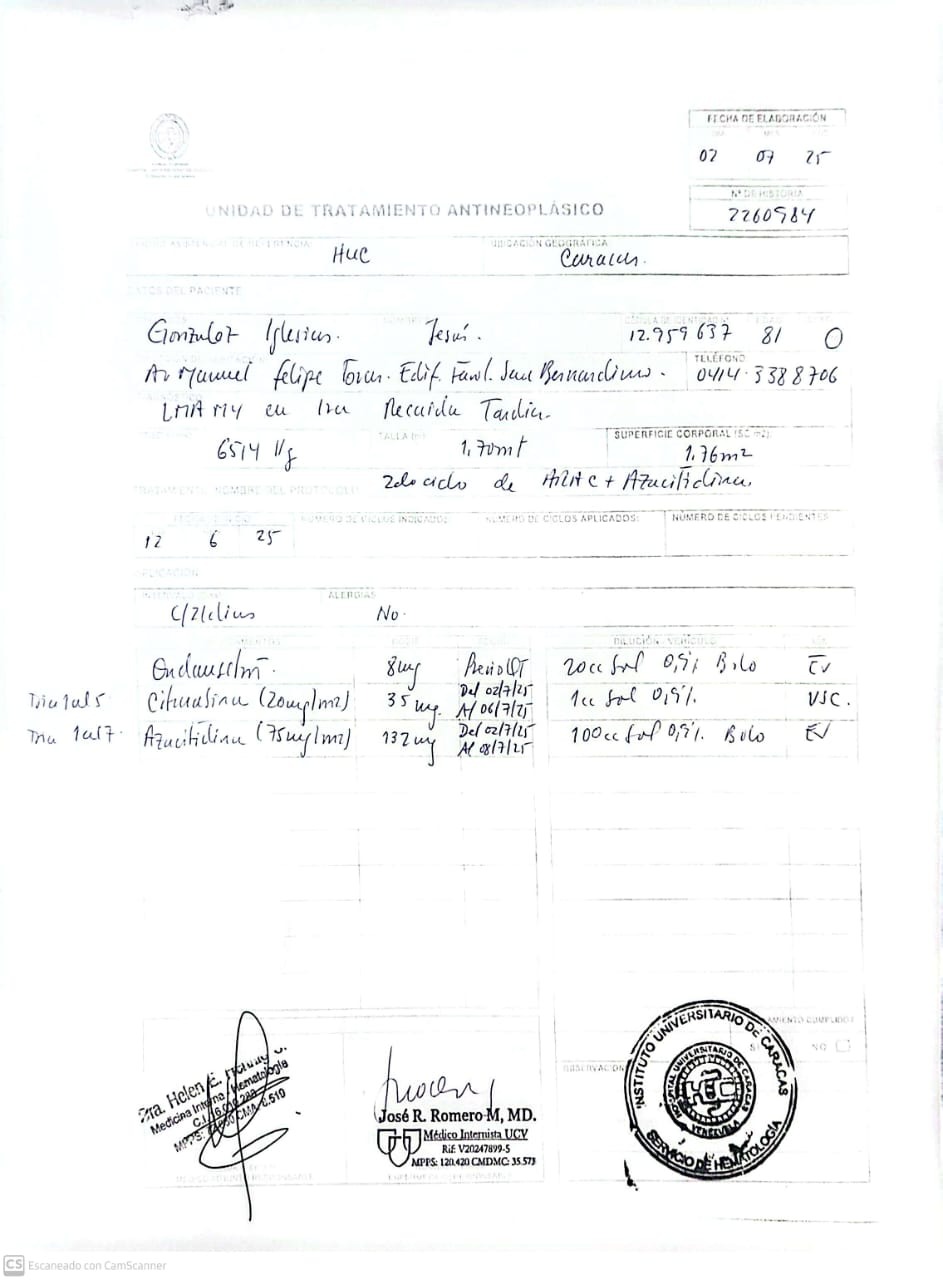 FECHA DE ELABORACIÓN
02 07 25
Nº DE HISTORIA
2260984
UNIDAD DE TRATAMIENTO ANTINEOPLÁSICO
UBICACIÓN GEOGRÁFICA
HUC Caracas.
DATOS DEL PACIENTE
Gonzalez Iglesias. Jesús. 12.959637 81 O
TELÉFONO
Av Manuel Felipe Tovar. Edif. San Bernardino. 0414.3388706
LMA M4 en 1ra Recaida Tardia.
TALLA (m) SUPERFICIE CORPORAL (SC m2):
1.70mt 1.76m2
TRATAMIENTO: NOMBRE DEL PROTOCOLO: 2do ciclo de ARA C + Azacitidina.
NÚMERO DE CICLOS INDICADOS: NÚMERO DE CICLOS APLICADOS: NÚMERO DE CICLOS PENDIENTES
12 6 25
APLICACIÓN
ALERGIAS
C/21dias No.
DILUCIÓN - VEHÍCULO
8mg Previo QT 20cc Sol 0,9% Bolo EV
Dia 1al 5 Citarabina (20mg/m2) 35mg. Del 02/7/25 Al 06/7/25 1cc Sol 0,9% VSC.
Dia 1al 7. Azacitidina (75mg/m2) 132mg Del 02/7/25 Al 08/7/25 100cc Sol 0,9% Bolo EV
NO
OBSERVACION
Dra. Helen E.
Medicina Interna Hematologia
José R. Romero M, MD.
Médico Internista UCV
Rif: V20247899-5
MPPS: 120.420 CMDMC: 35.573
INSTITUTO UNIVERSITARIO DE CARACAS
HOSPITAL UNIVERSITARIO DE CARACAS
VENEZUELA
SERVICIO DE HEMATOLOGÍA
CS Escaneado con CamScanner